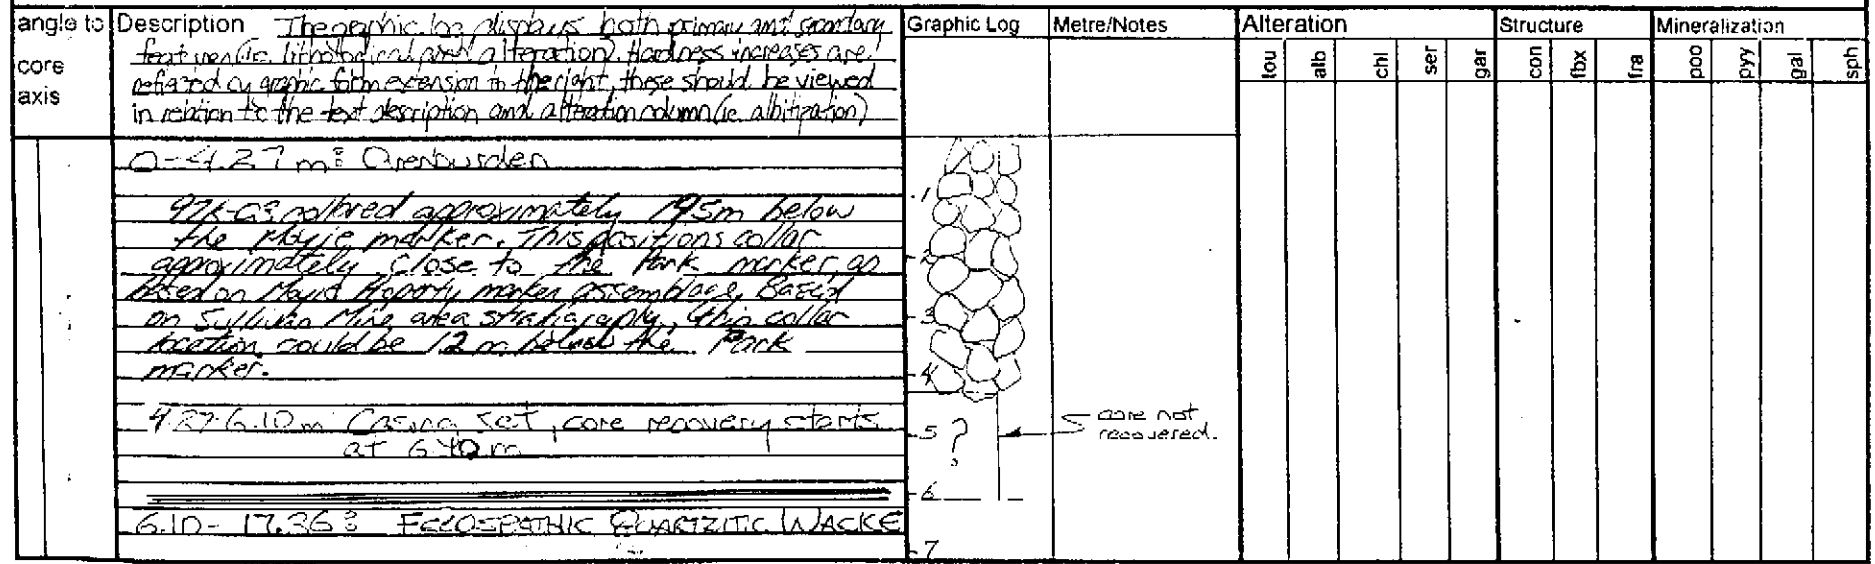 angle to core axis
Description The graphic log displays both primary and secondary
features (ie. lithological and alteration). Hardness increases are
refined by graphic form extension to the right, these should be viewed
in relation to the text description and alteration column (ie. albitization)
Graphic Log
Metre/Notes
Alteration
tou alb chl ser gar
Structure
con fbx fra
Mineralization
poo pyy gal sph
0-4.27 m: Overburden
collared approximately 195m below
the Moyie marker. This positions collar
approximately close to the Park marker, as
based on Property marker assemblage. Based
on Sullivan Mine area stratigraphy, this collar
location could be 12 m below the Park
marker.
4.27-6.10 m Casing set, core recovery starts
at 6.10 m
6.10 - 17.36: FELDSPATHIC QUARTZITIC WACKE
-1
-2
-3
-4
-5 ?
-6
-7
core not
recovered.